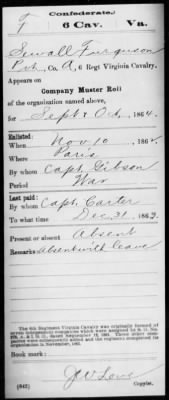 Confederate.
F 6 Cav. Va.
Sewall Furguson
Pvt, Co. A, 6 Regt Virginia Cavalry.
Appears on
Company Muster Roll
of the organization named above,
for Sept & Oct, 1864.
Enlisted:
When Nov 10, 186
Where Paris
By whom Capt. Gibson
Period War
Last paid:
By whom Capt. Carter
To what time Dec 31, 1863.
Present or absent Absent
Remarks: Absent with leave
The 6th Regiment Virginia Cavalry was originally formed of
seven independent companies which were assigned to it by S. O. No.
248, A. & I. G. O., dated September 12, 1861. Three other companies
were subsequently added and the regiment completed its
organization in November, 1861.
Book mark:
(642)
J W Love
Copyist.